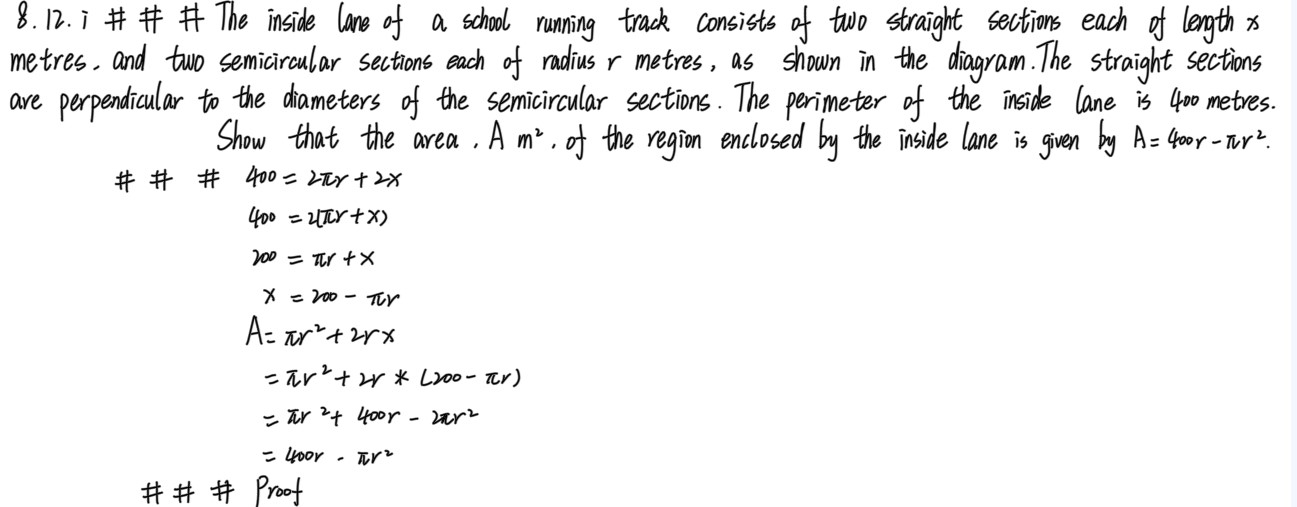 8.12.i # # # The inside lane of a school running track consists of two straight sections each of length x
metres, and two semicircular sections each of radius r metres, as shown in the diagram. The straight sections
are perpendicular to the diameters of the semicircular sections. The perimeter of the inside lane is 400 metres.
Show that the area, A m², of the region enclosed by the inside lane is given by A = 400r - πr².
# # # 400 = 2πr + 2x
400 = 2(πr + x)
200 = πr + x
x = 200 - πr
A = πr² + 2rx
= πr² + 2r * (200 - πr)
= πr² + 400r - 2πr²
= 400r - πr²
# # # Proof